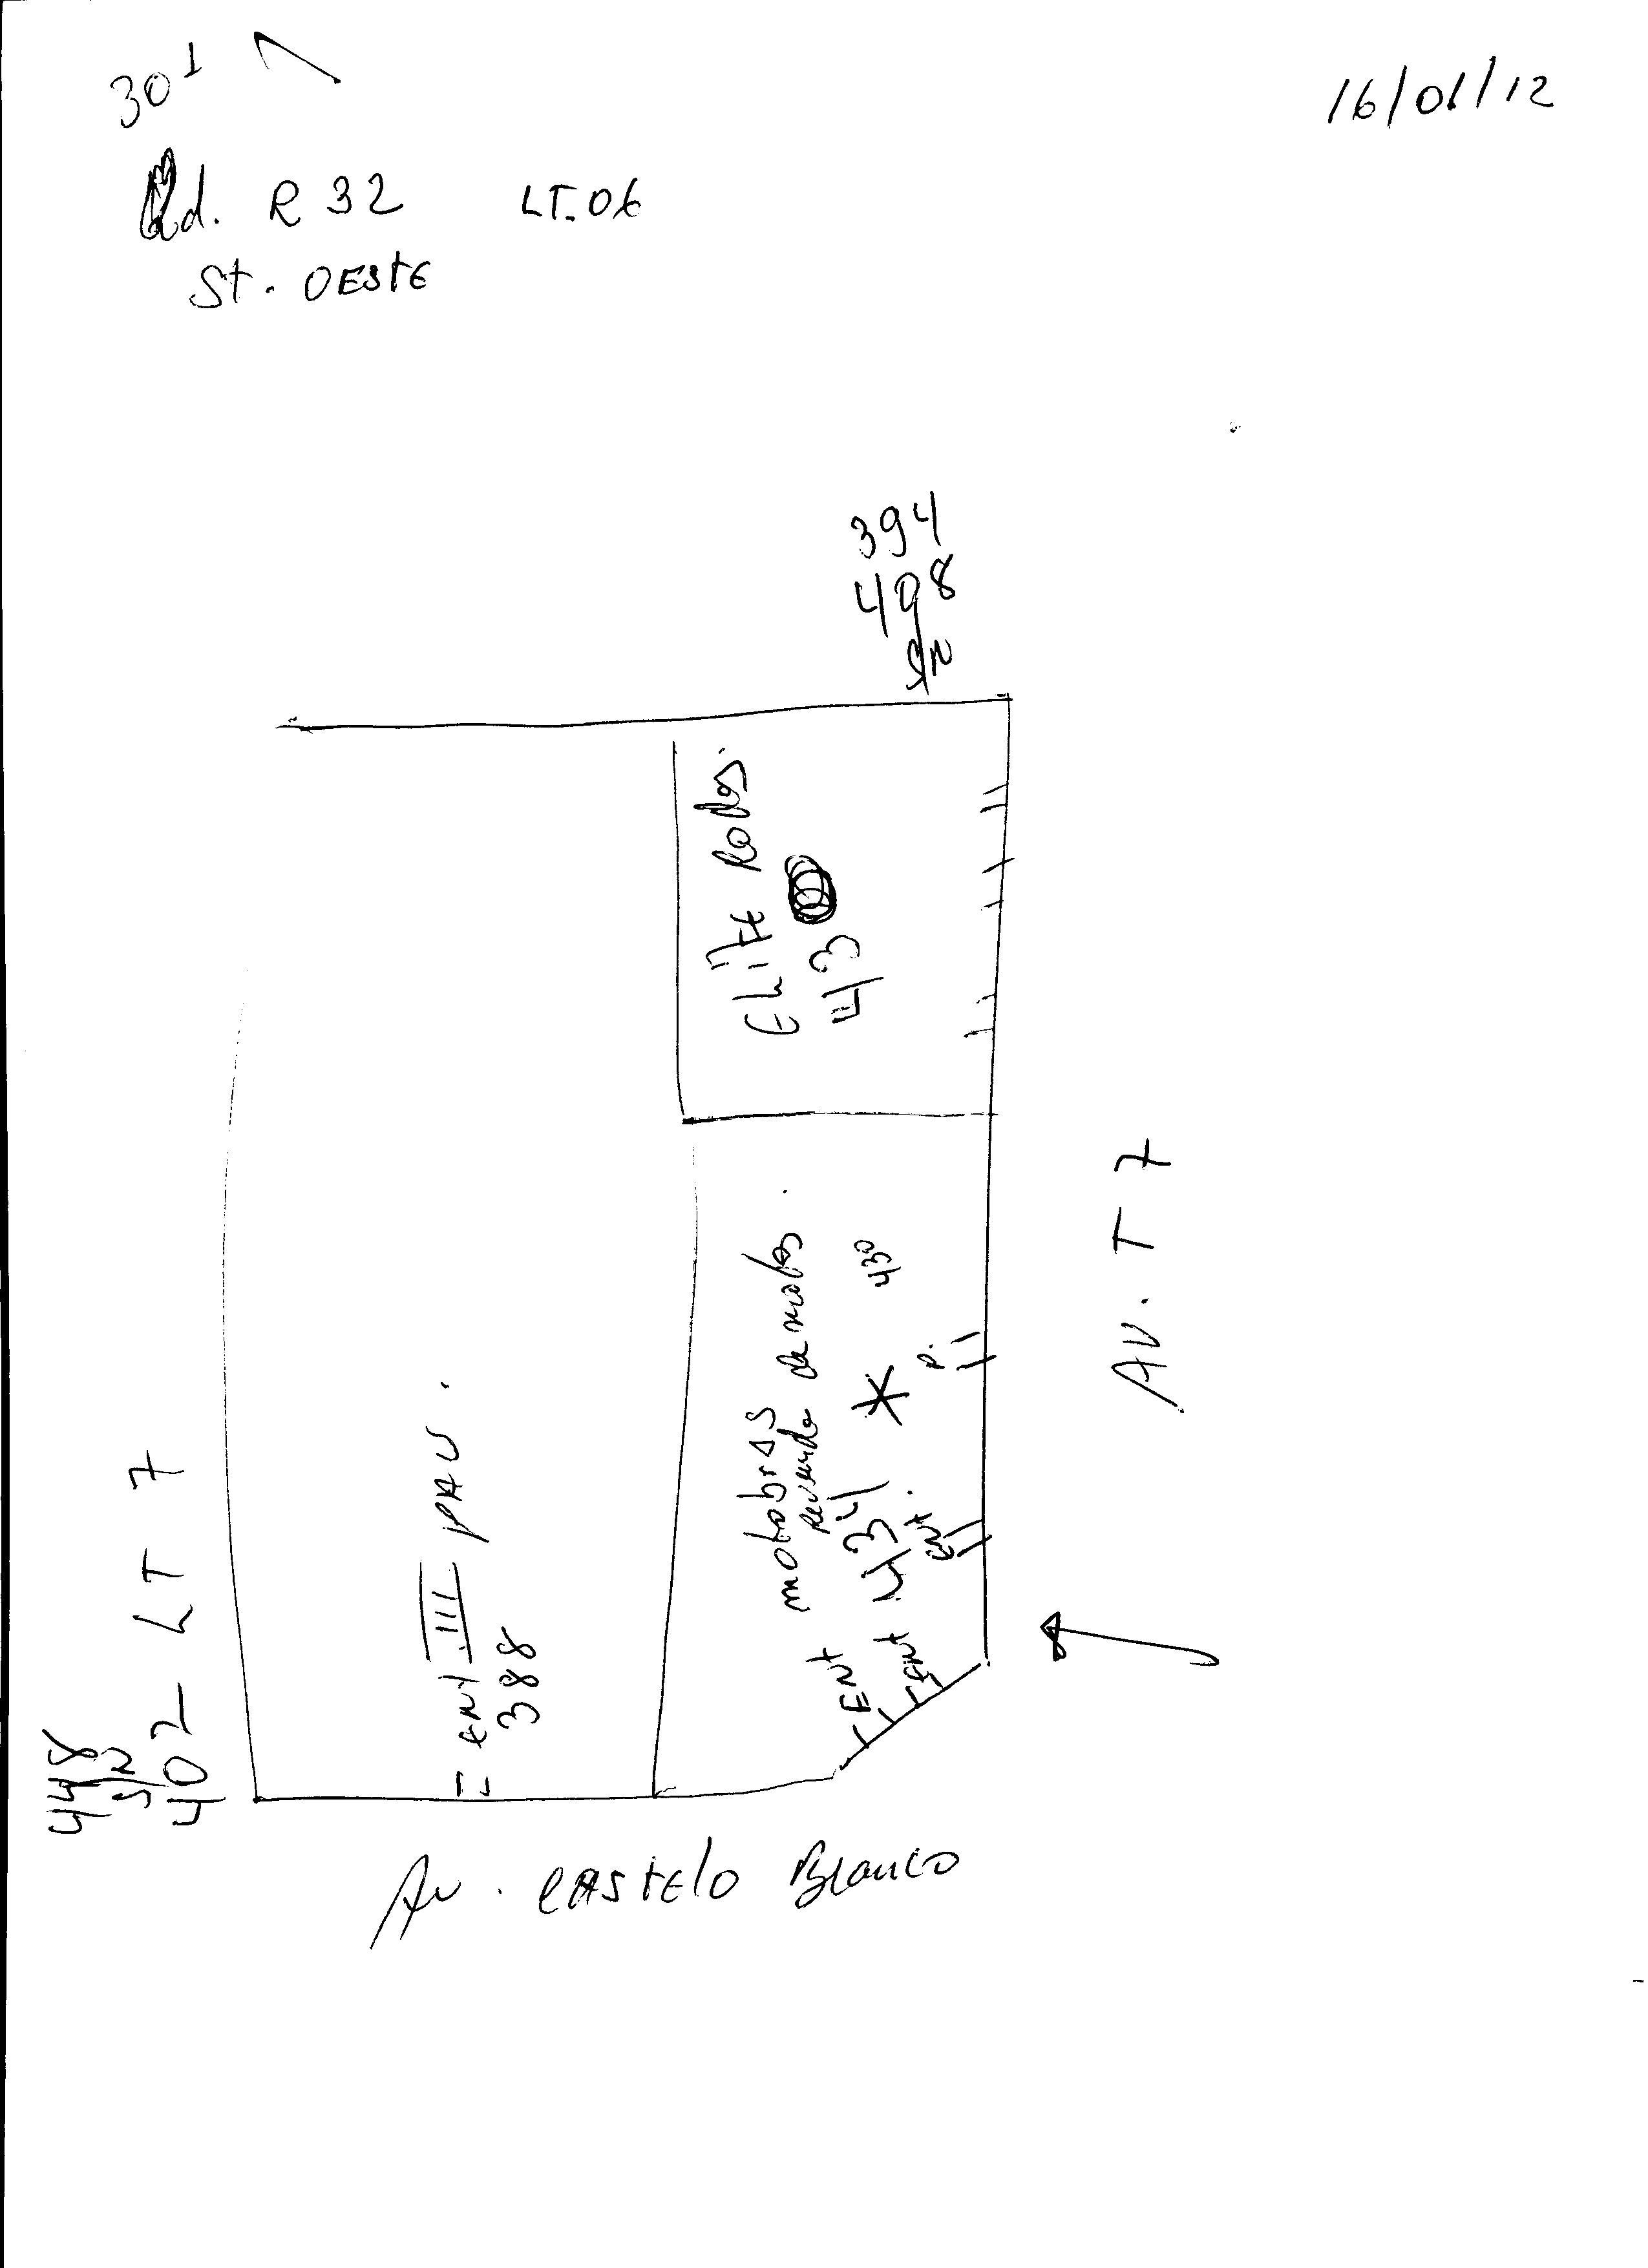 30 1
16/01/12
Qd. R 32 LT. 06
St. OESTE
394
498
S/N
ELITE Rodas.
43
motobras
Revenda de motos.
434 * 430
ENT. P.
ENT
ENT
AV. T 7
ent III PAV.
388
448
S/N
402 - LT 7
Av. CASTELO Branco